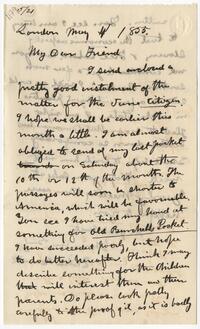 London May 4 / 1855.
My Dear Friend
I send enclosed a
pretty good instalment of the
matter for the Juno Citizen
I hope we shall be earlier this
month a little. I am almost
obliged to send off my last packet
on Saturday about the
10th or 12th of the month. The
passages will soon be shorter to
America, which will be favourable.
You see I have tried my hand at
something for Old Pocket
I have succeeded poorly, but hope
to do better hereafter. I think I may
describe something for the children
that will interest them as their
parents. Do please look pretty
carefully to the proof of it, as it is badly